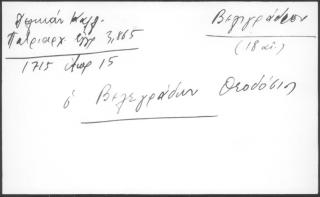 Πατριαρχ. έγγρ 3,865
1715 Απρ 15
Βελεγράδων
(18 αι.)
ὁ Βελεγράδων Θεοδόσιος